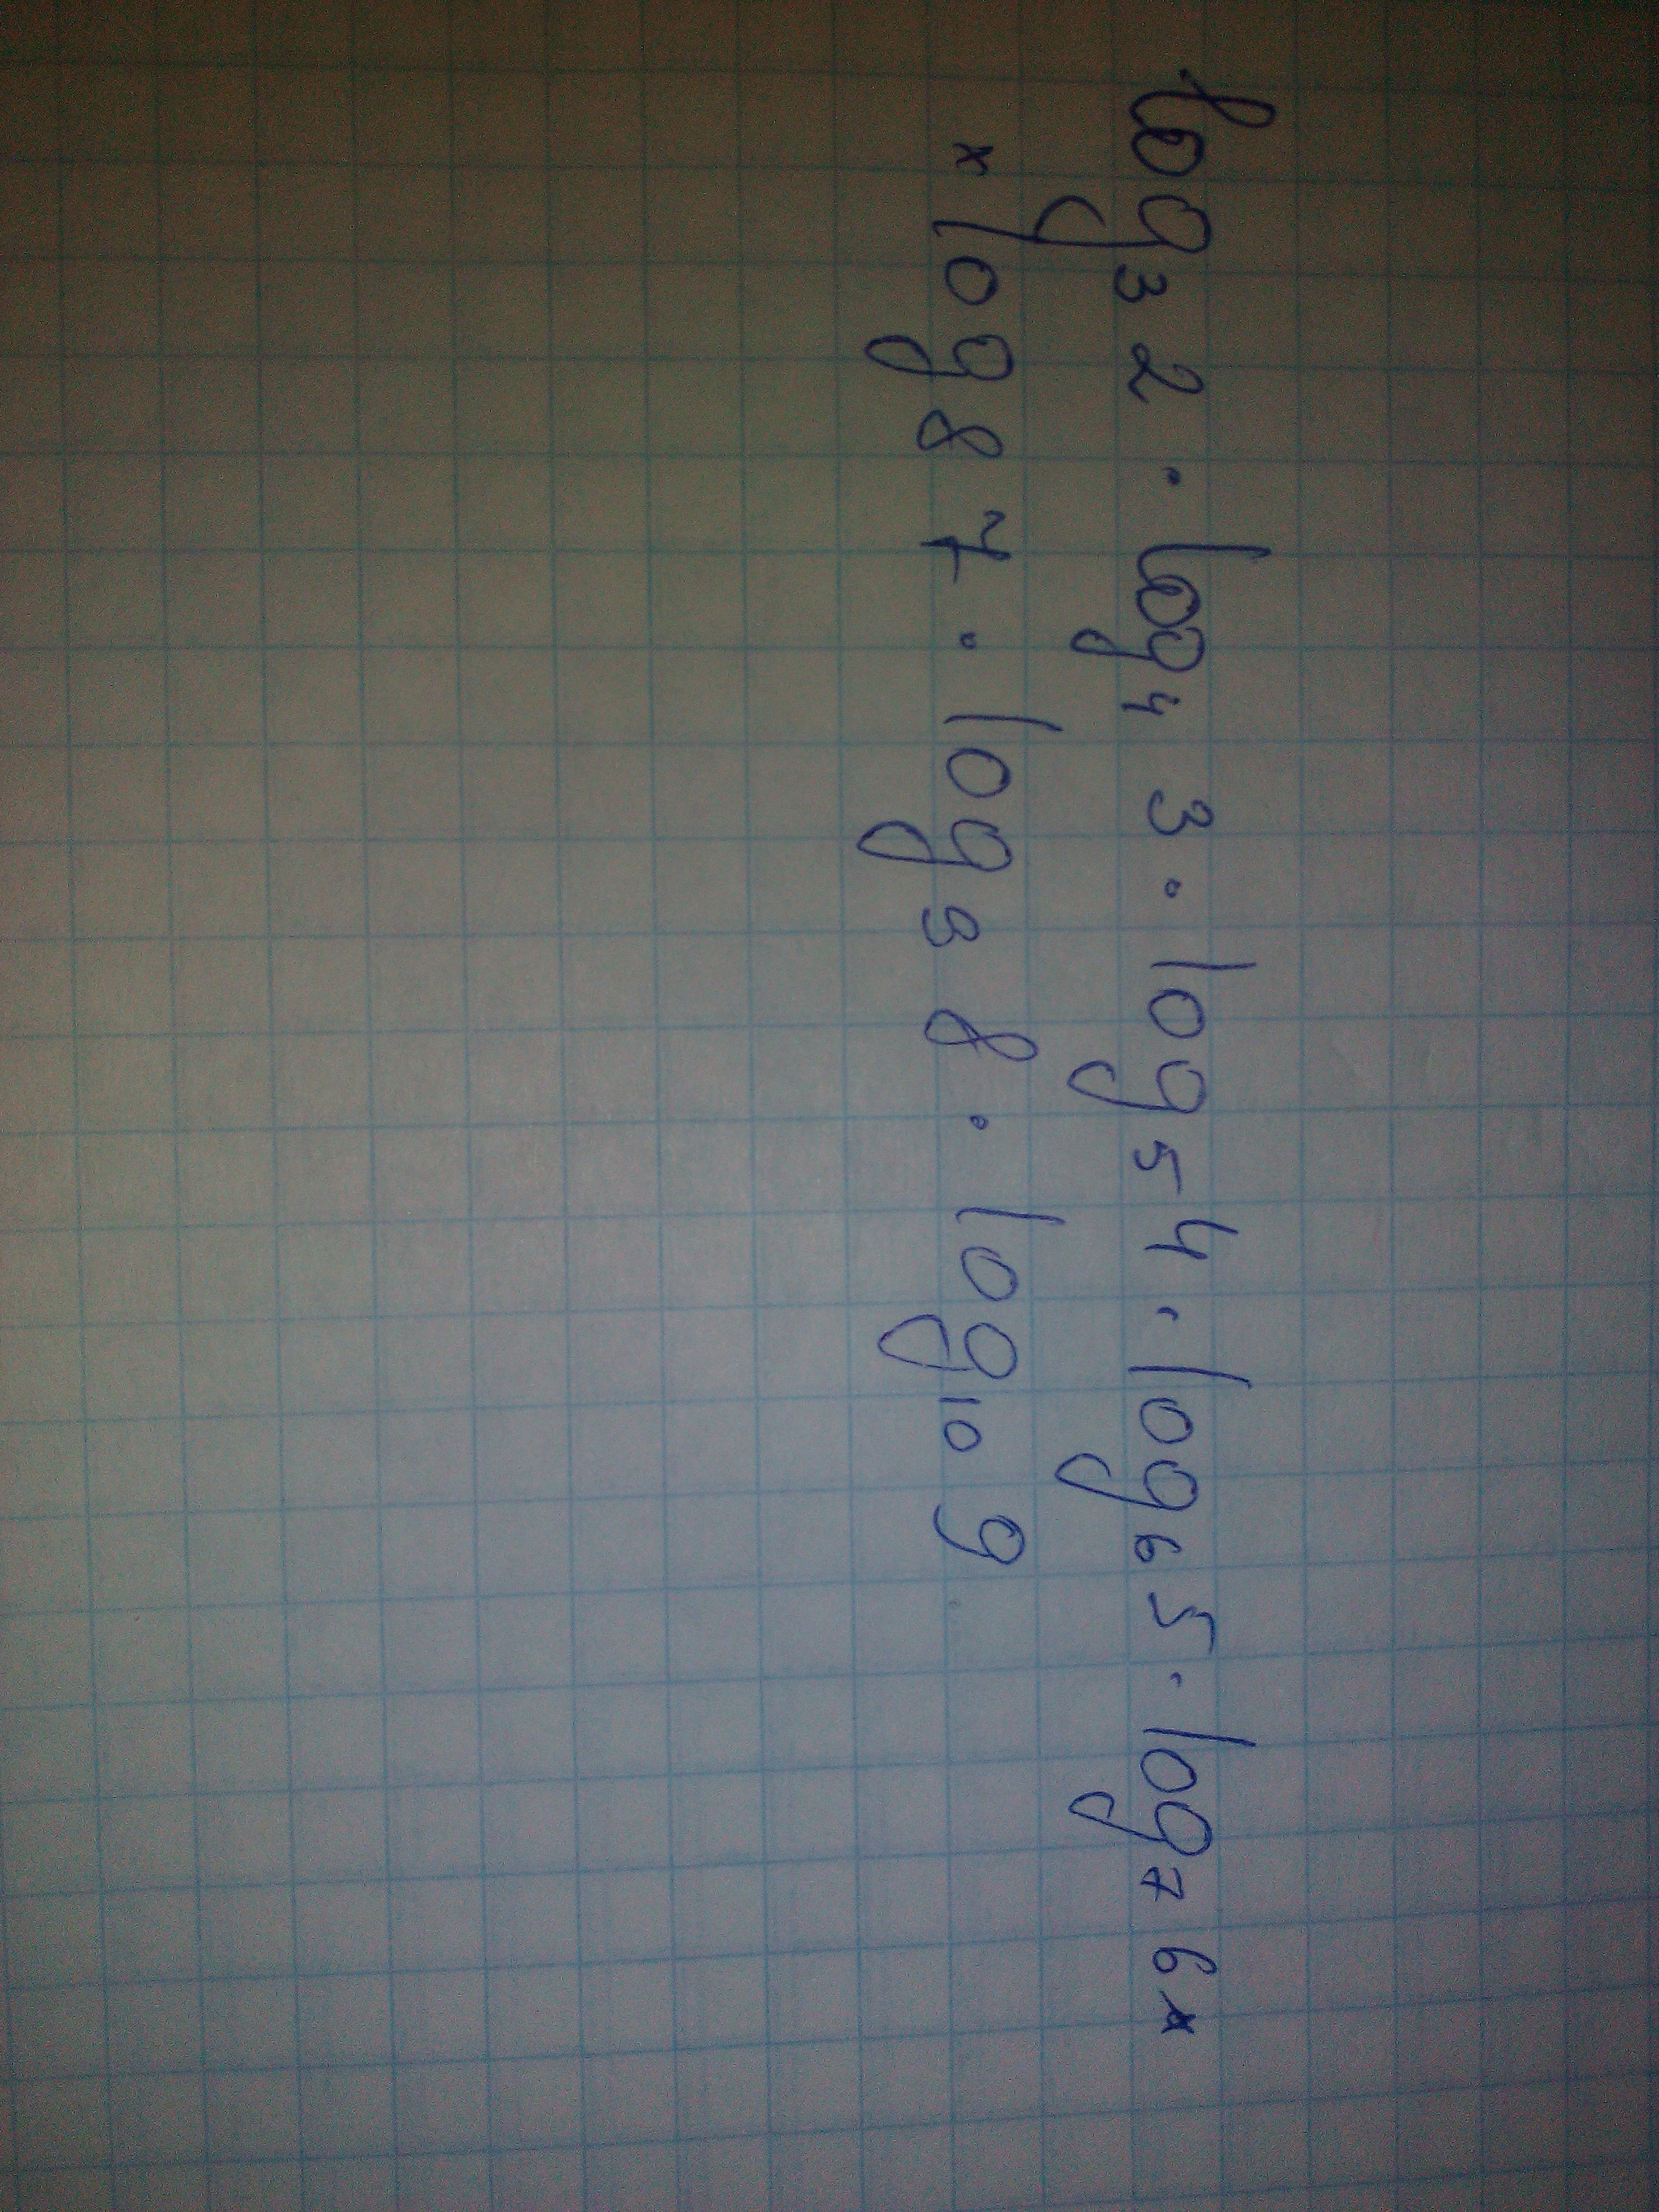 log₃ 2 · log₄ 3 · log₅ 4 · log₆ 5 · log₇ 6 ×
× log₈ 7 · log₉ 8 · log₁₀ 9